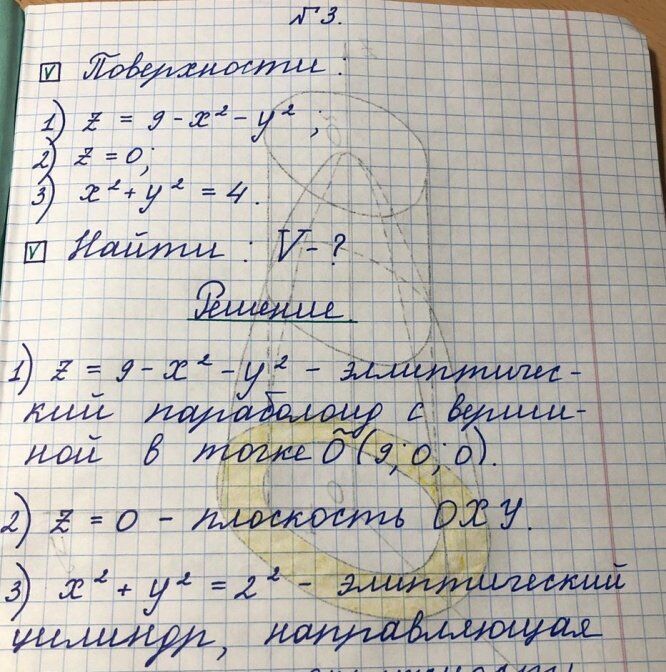 № 3.
Поверхности:
1) z = 9 - x² - y²;
2) z = 0;
3) x² + y² = 4.
Найти: V - ?
Решение.
1) z = 9 - x² - y² - эллиптичес-
кий параболоид с верши-
ной в точке Õ (9; 0; 0).
2) z = 0 - плоскость OXY.
3) x² + y² = 2² - элиптический
цилиндр, направляющая